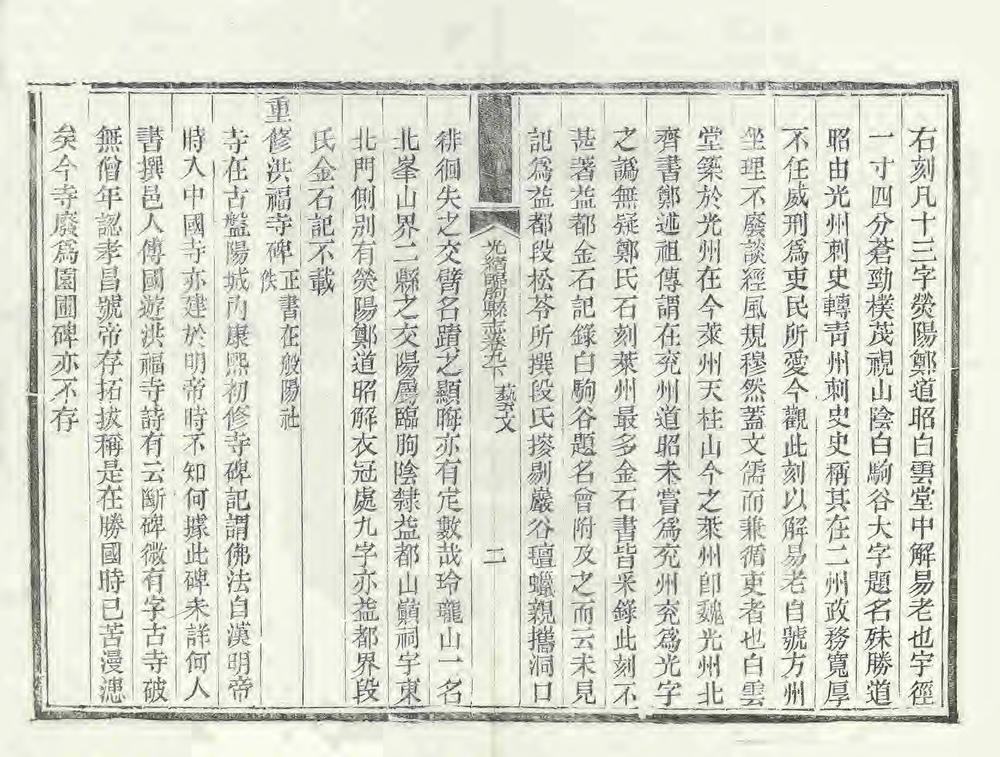 右刻凡十三字熒陽鄭道昭白雲堂中解易老也字徑
一寸四分蒼勁樸茂視山陰白駒谷大字題名殊勝道
昭由光州刺史轉靑州刺史史稱其在二州政務寬厚
不任威刑爲吏民所愛今觀此刻以解易老自號方州
坐理不廢談經風規穆然蓋文儒而兼循吏者也白雲
堂築於光州在今萊州天柱山今之萊州卽魏光州北
齊書鄭述祖傳謂在兖州道昭未嘗爲兖州兖爲光字
之譌無疑鄭氏石刻萊州最多金石書皆采錄此刻不
甚著益都金石記錄白駒谷題名曾附及之而云未見
記爲益都段松苓所撰段氏摉剔巖谷璮蠟親攜洞口
光緒臨朐縣志卷九下 藝文
二
徘徊失之交臂名蹟之顯晦亦有定數哉玲瓏山一名
北峯山界二縣之交陽屬臨朐陰隸益都山巔祠宇東
北門側別有熒陽鄭道昭解衣冠處九字亦益都界段
氏金石記不載
重修洪福寺碑 正書在般陽社 佚
寺在古盤陽城內康熙初修寺碑記謂佛法自漢明帝
時入中國寺亦建於明帝時不知何據此碑未詳何人
書撰邑人傅國遊洪福寺詩有云斷碑微有字古寺破
無僧年認孝昌號帝存拓拔稱是在勝國時已苦漫漶
矣今寺廢爲園圃碑亦不存